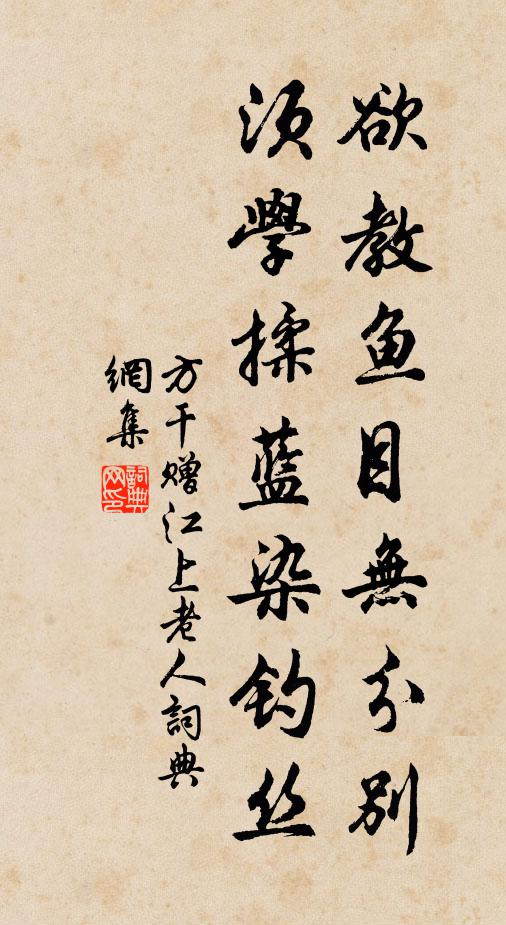 欲教鱼目無分别
须學揉藍染钓丝
方干赠江上老人詞典
網集
詞典網印